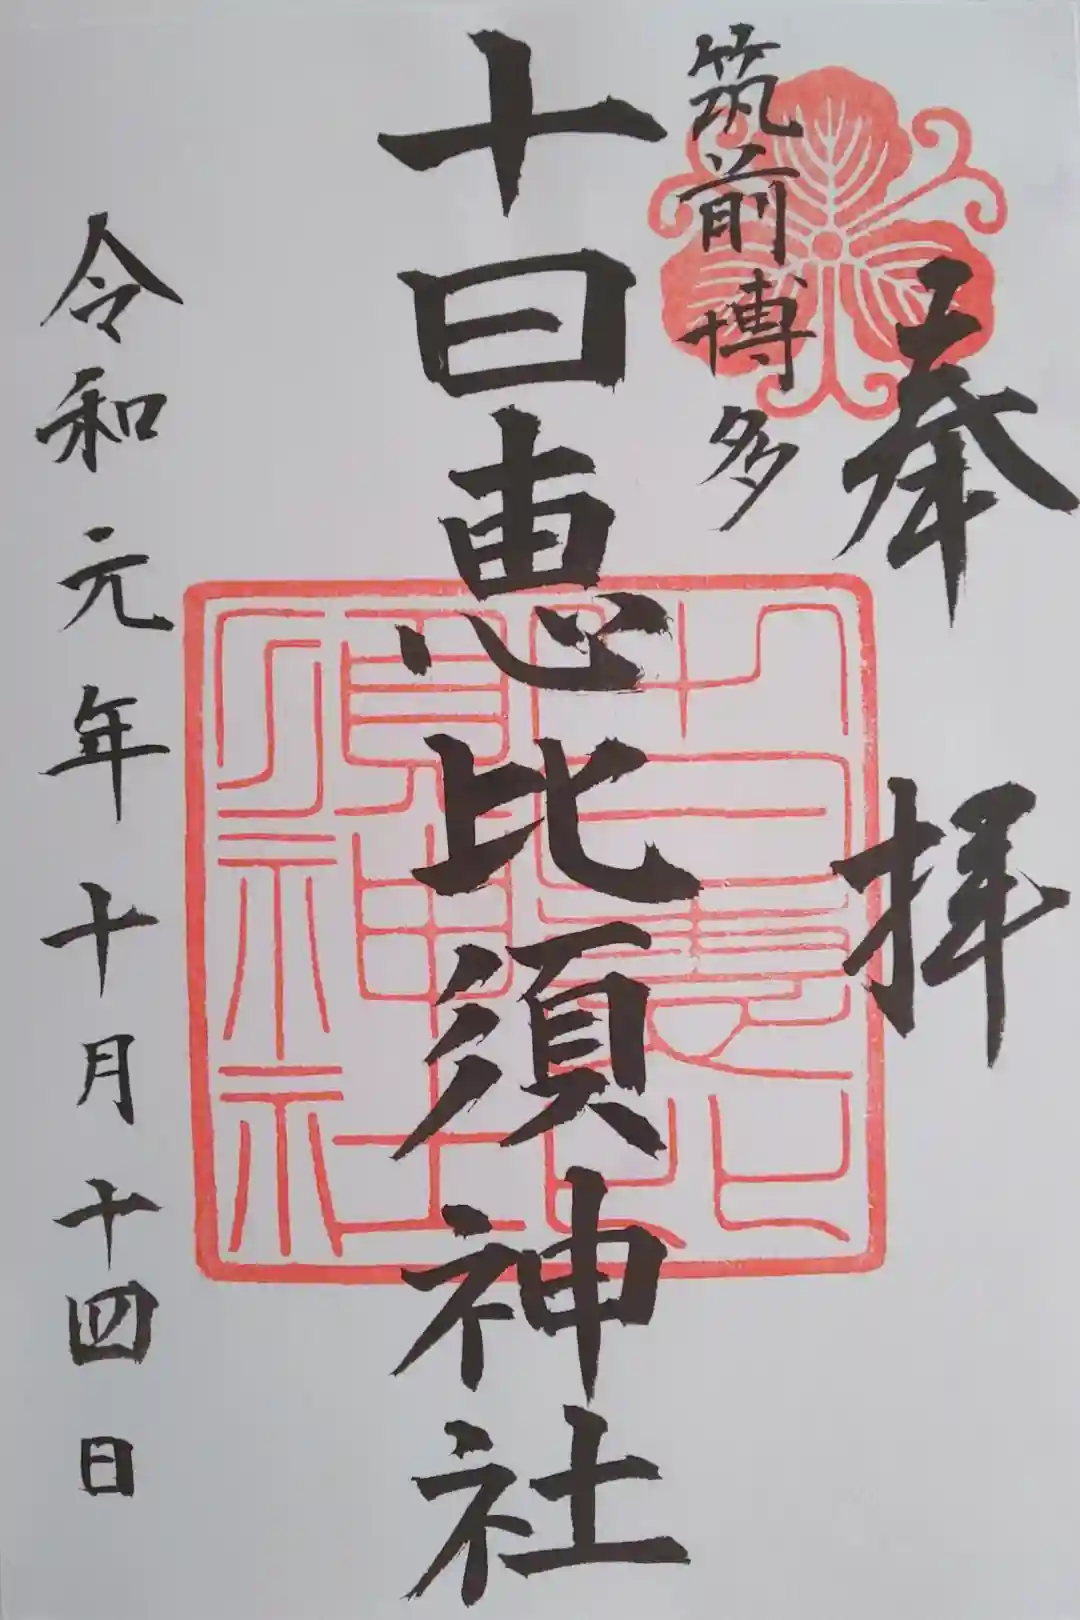 奉拝
筑前博多
十日恵比須神社
令和元年十月十四日
十日恵比
須神社